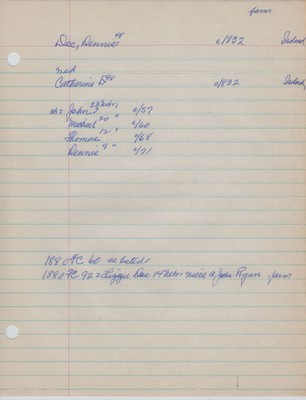 farm
Dee, Dennis 48 c1832 Ireland
md
Catherine D 48 c1832 Ireland
ch = John 23 c/57
Michael 20 " c/60
Thomas 12 " c/68
Dennis 9 " c/71
1880 FC 60 as listed
1880 FC 92 = Lizzie Dee 14 niece of John Ryan farm